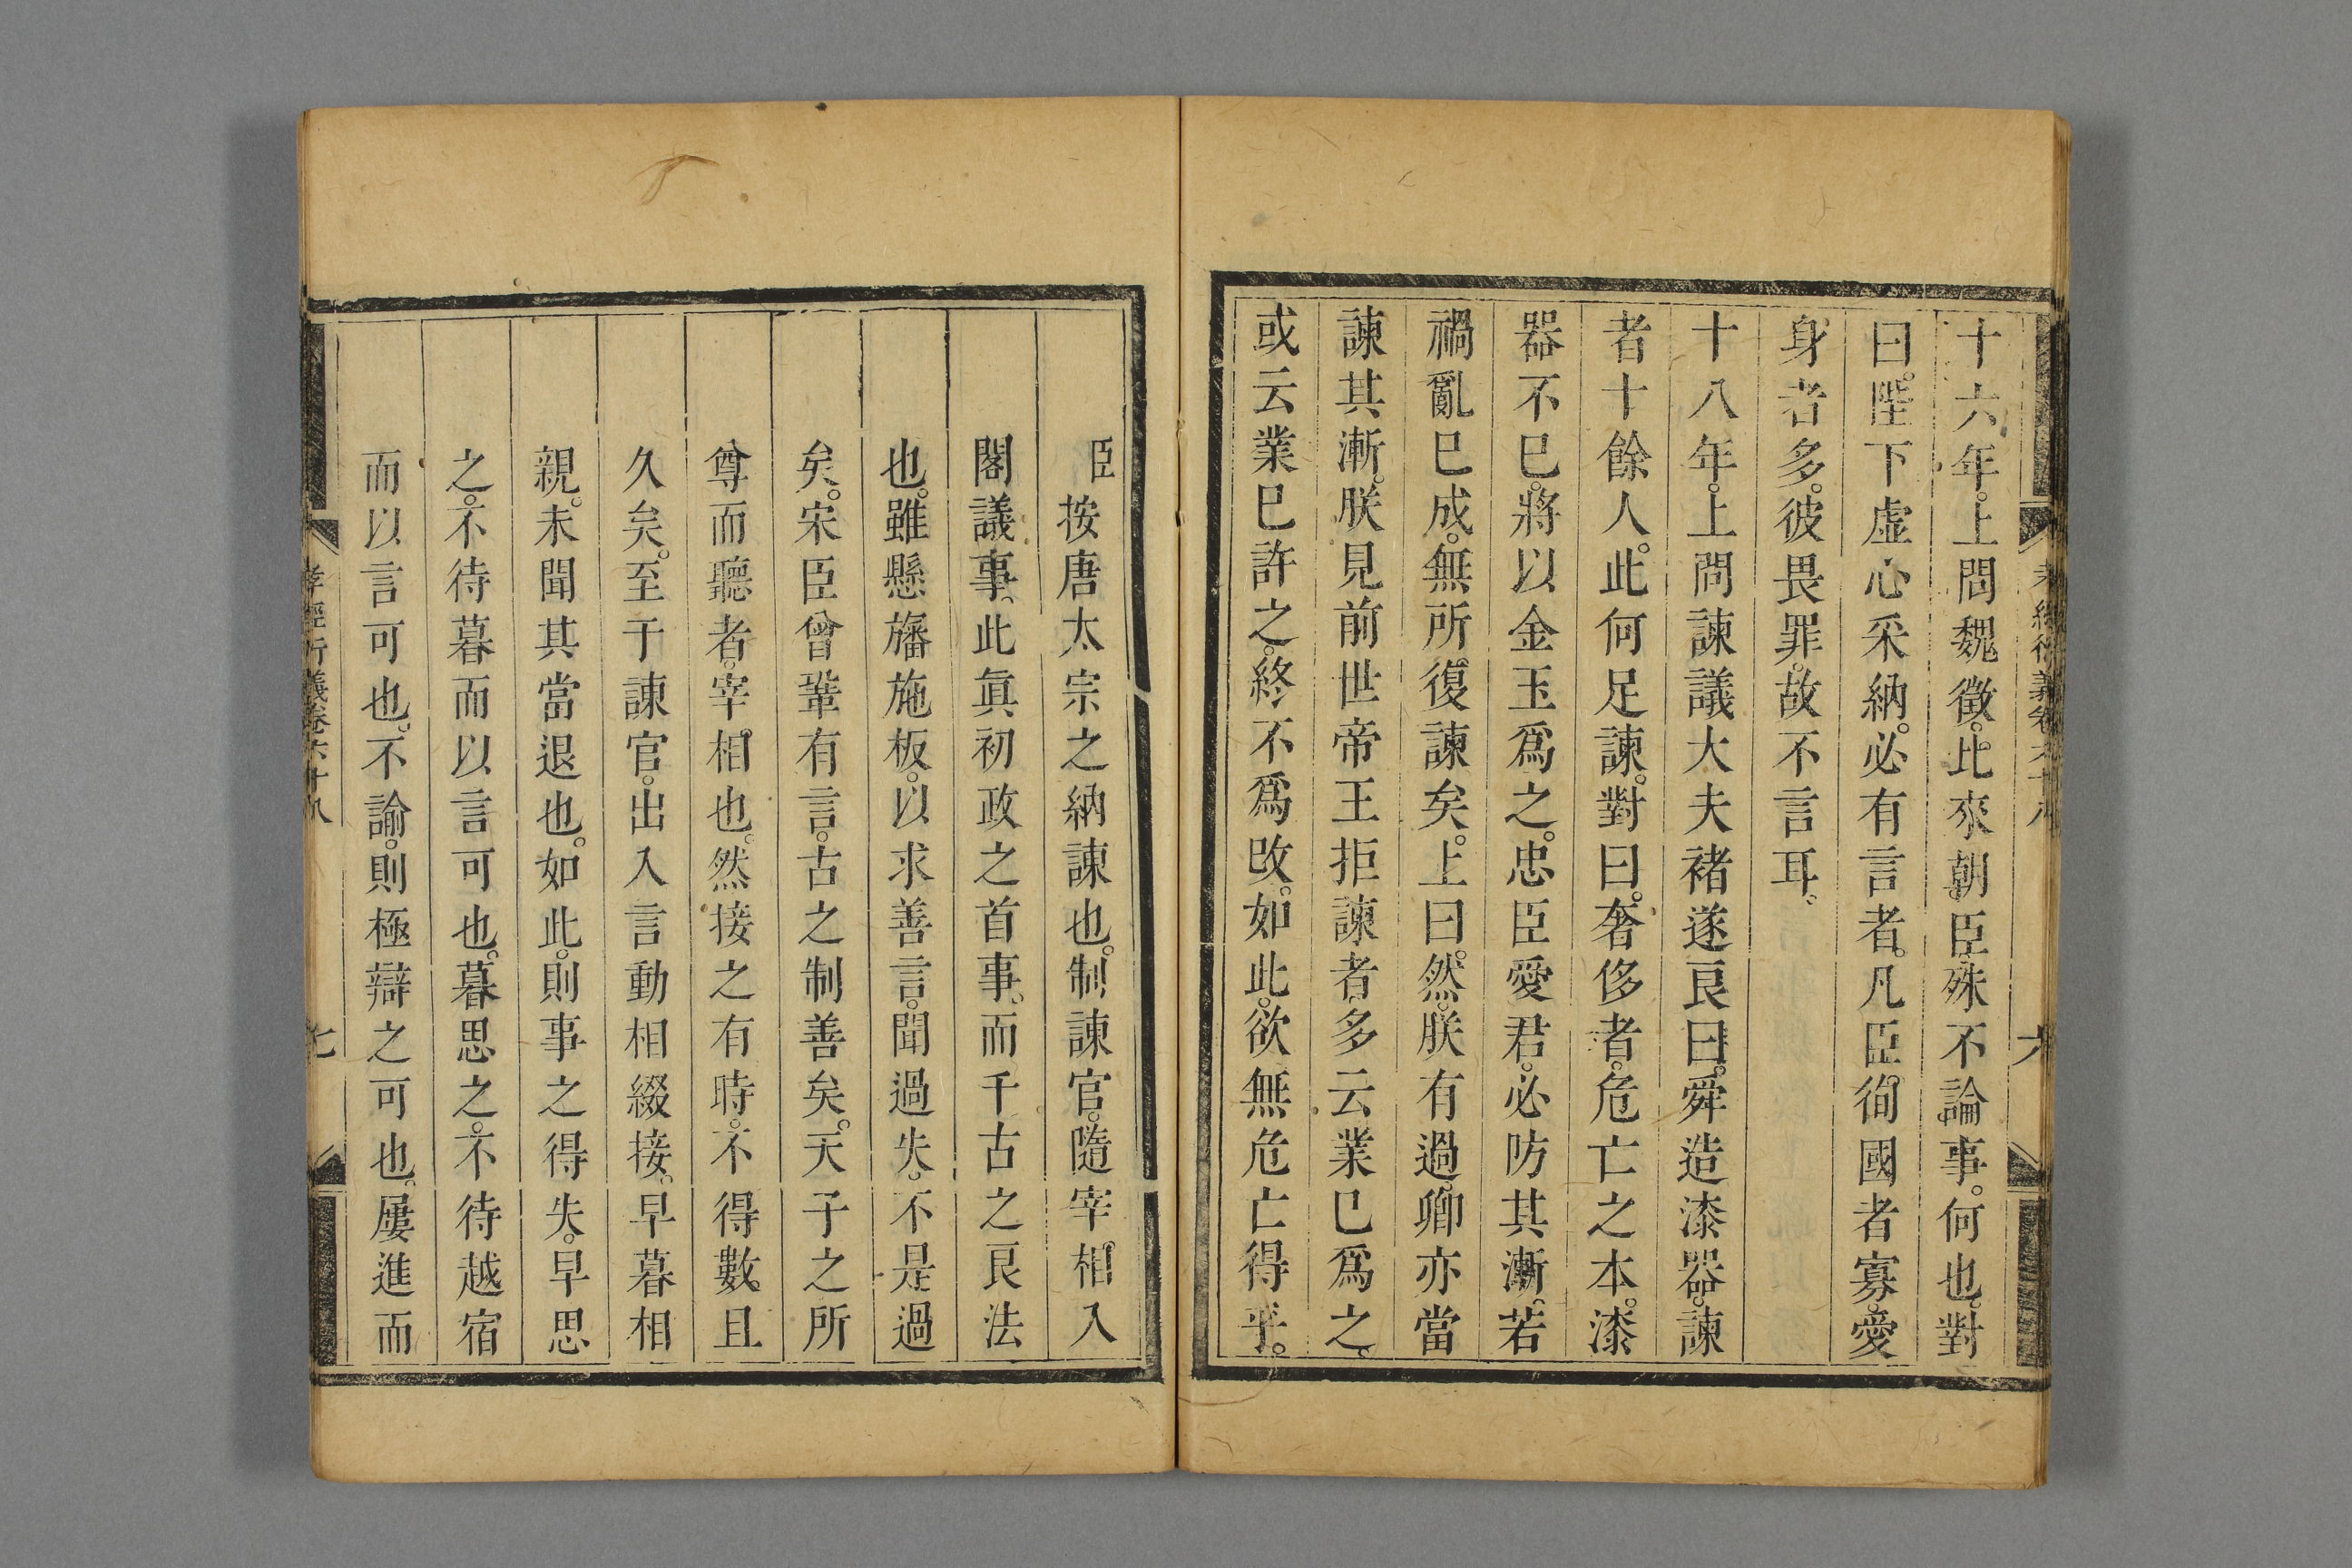 孝經衍義卷六十八
六
十六年。上問魏徵。比來朝臣。殊不論事。何也。對
曰。陛下虛心采納。必有言者。凡臣。徇國者寡。愛
身者多。彼畏罪。故不言耳。
十八年。上問諫議大夫褚遂良曰。舜造漆器。諫
者十餘人。此何足諫。對曰。奢侈者。危亡之本。漆
器不巳。將以金玉爲之。忠臣愛君。必防其漸。若
禍亂巳成。無所復諫矣。上曰。然。朕有過。卿亦當
諫其漸。朕見前世帝王拒諫者。多云業巳爲之。
或云業巳許之。終不爲改。如此。欲無危亡得乎。
臣按唐太宗之納諫也。制諫官。隨宰相入
閣議事。此眞初政之首事。而千古之良法
也。雖懸旛施板。以求善言。聞過失。不是過
矣。宋臣曾鞏有言。古之制善矣。天子之所
尊而聽者。宰相也。然接之有時。不得數。且
久矣。至于諫官。出入言動相綴接。早暮相
親。未聞其當退也。如此。則事之得失。早思
之。不待暮而以言可也。暮思之。不待越宿
而以言可也。不諭。則極辯之可也。屢進而
孝經衍義卷六十八
七